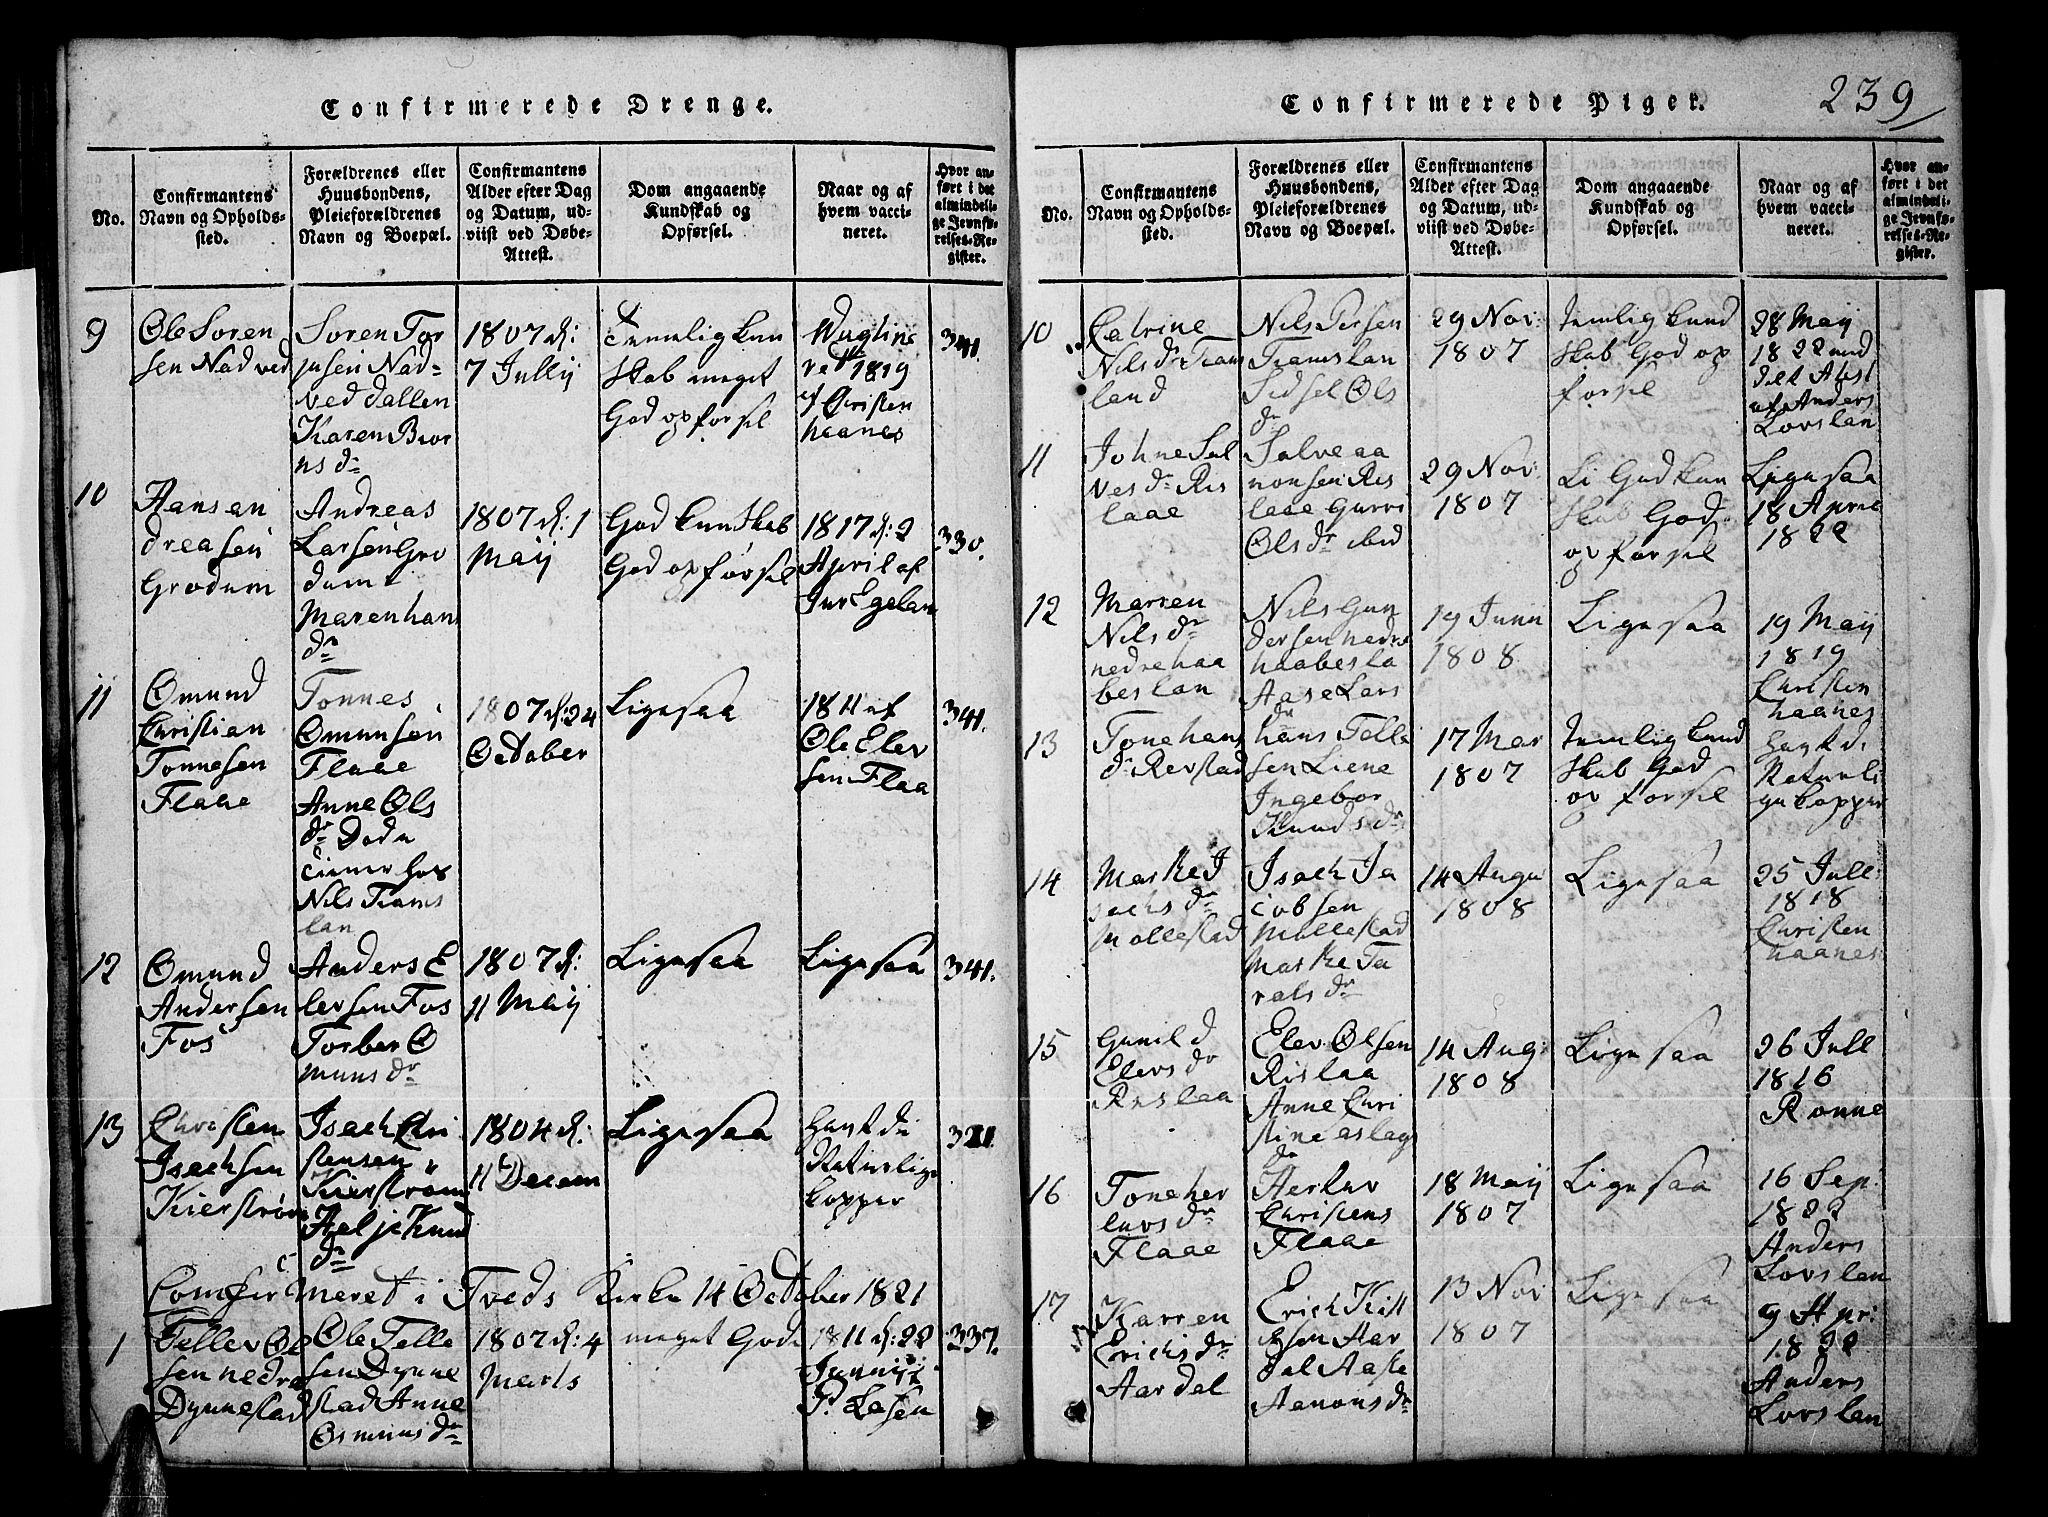 Confirmerede Drenge.
No.
Confirmantens
Navn og Opholds-
sted.
Forældrenes eller
Huusbondens,
Pleieforældrenes
Navn og Boepæl.
Confirmantens
Alder efter Dag
og Datum, ud-
viist ved Døbe-
Attest.
Dom angaaende
Kundskab og
Opførsel.
Naar og af
hvem vacci-
neret.
Hvor an-
ført i det
almindeli-
ge Jevnfø-
relses-Re-
gister.
9
Ole Soren
sen Nadved
Soren Tor
jusen Nad-
ved dallen
Karen Bior
ns dr
1807 d:
7 Jullij
temelig kun
skab meget
God opforsel
1819
af Christen
haanes
341.
10
Hans an
dreasen
Grodum
Andreas
Larsen Gro
dum &
Maren hans
dr
1807 d: 1
Maij
God kunskab
God opførsel
1817 d: 2
April af
Jur Egelan
330.
11
Omund
Christian
Tonnesen
Flaae
Tonnes
Omunsen
Flaae
Anne Ols
dr Dode
tiener hos
Nils Trams
lan
1807 d: 24
October
Ligesaa
1811 af
Ole Elev
sen Flaa
341.
12
Omund
Andersen
Fos
Anders E
lersen Fos
Torber O
muns dr
1807 d:
11 Maij
Ligesaa
Ligesaa
341.
13
Christen
Isachsen
Kierstrøm
Isach Chri
stensen
Kierstrøm
Aelje Knud
dr
1804 d:
11 Decem
Ligesaa
havt de
Naturlige
kopper
321.
Comfirmeret i Tveds Kirke 14 October 1821
1
Tellev Ol
sen nedre
Dynnestad
Ole Telle
sen Dynne
stad Anne
Osmuns dr
1807 d: 4
Marts
meget God
1811 d: 22
Junij
P. Lasen
337.
Confirmerede Piger.
239
No.
Confirmantens
Navn og Opholds-
sted.
Forældrenes eller
Huusbondens,
Pleieforældrenes
Navn og Boepæl.
Confirmantens
Alder efter Dag
og Datum, ud-
viist ved Døbe-
Attest.
Dom angaaende
Kundskab og
Opførsel.
Naar og af
hvem vacci-
neret.
Hvor an-
ført i det
almindeli-
ge Jevnfø-
relses-Re-
gister.
10
Catrine
Nils dr Trams
land
Nils Persen
Tramslan
Sidsel Ols
dr
29 Nov:
1807
temlig kund
skab God op
forsel
28 Maij
1822 med
delt Atest
af Anders
Lovslan
11
Johne Sal
ves dr Ris
laae
Salve aa
nonsen Ris
laae Gurri
Ols dr ibid
29 Nov:
1807
Li God kun
skab God
opforsel
Ligesaa
18 Apriel
1822
12
Marren
Nils dr
nedre haa
beslan
Nils Gun
dersen nedre
haabesla
Aase Lars
dr
19 Junii
1808
Ligesaa
19 Maij
1819
Christen
haanes
13
Tone hans
dr Revstad
hans Telle
sen Liene
Ingebor
Knuds dr
17 Mar
1807
Temlig kund
skab God
opforsel
havt de
Naturli
ge kopper
14
Maske I
sachs dr
Mollestad
Isach Ja
cobsen
Mollestad
Maske Ta
rals dr
14 Augu
1808
Ligesaa
25 Jull:
1818
Christen
haanes
15
Gunild
Elevs dr
Rislaa
Elev Olsen
Rislaa
Anne Chri
stine aslags
dr
14 Aug:
1808
Ligesaa
26 Jull
1816
Ronne
16
Tone her
lavs dr
Flaae
Herlav
Christens
Flaae
18 Maij
1807
Ligesaa
16 Sep:
1822
Anders
Lovslan
17
Karren
Erichs dr
Aardal
Erich Kitt
elsen Aar
dal Aaste
Aanons dr
13 Nov
1807
Ligesaa
9 Apri:
1822
Anders
Lovslan